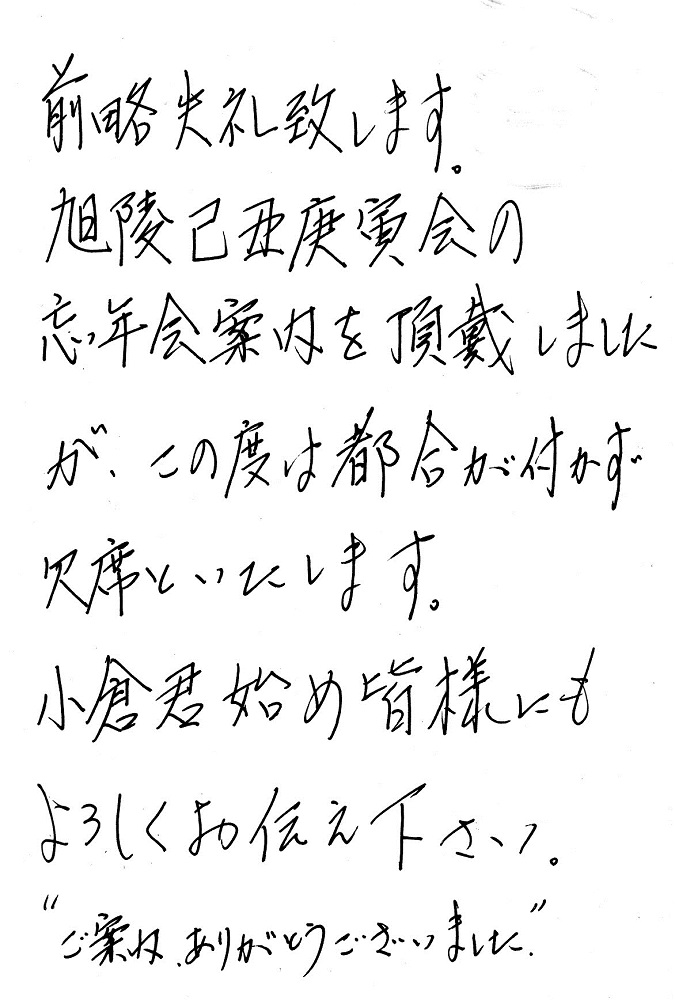 前略失礼致します。
旭陵己亜庚寅会の
忘年会案内を頂戴しました
が、この度は都合が付かず
欠席といたします。
小倉君始め皆様にも
よろしくお伝え下さい。
“ご案内、ありがとうございました”